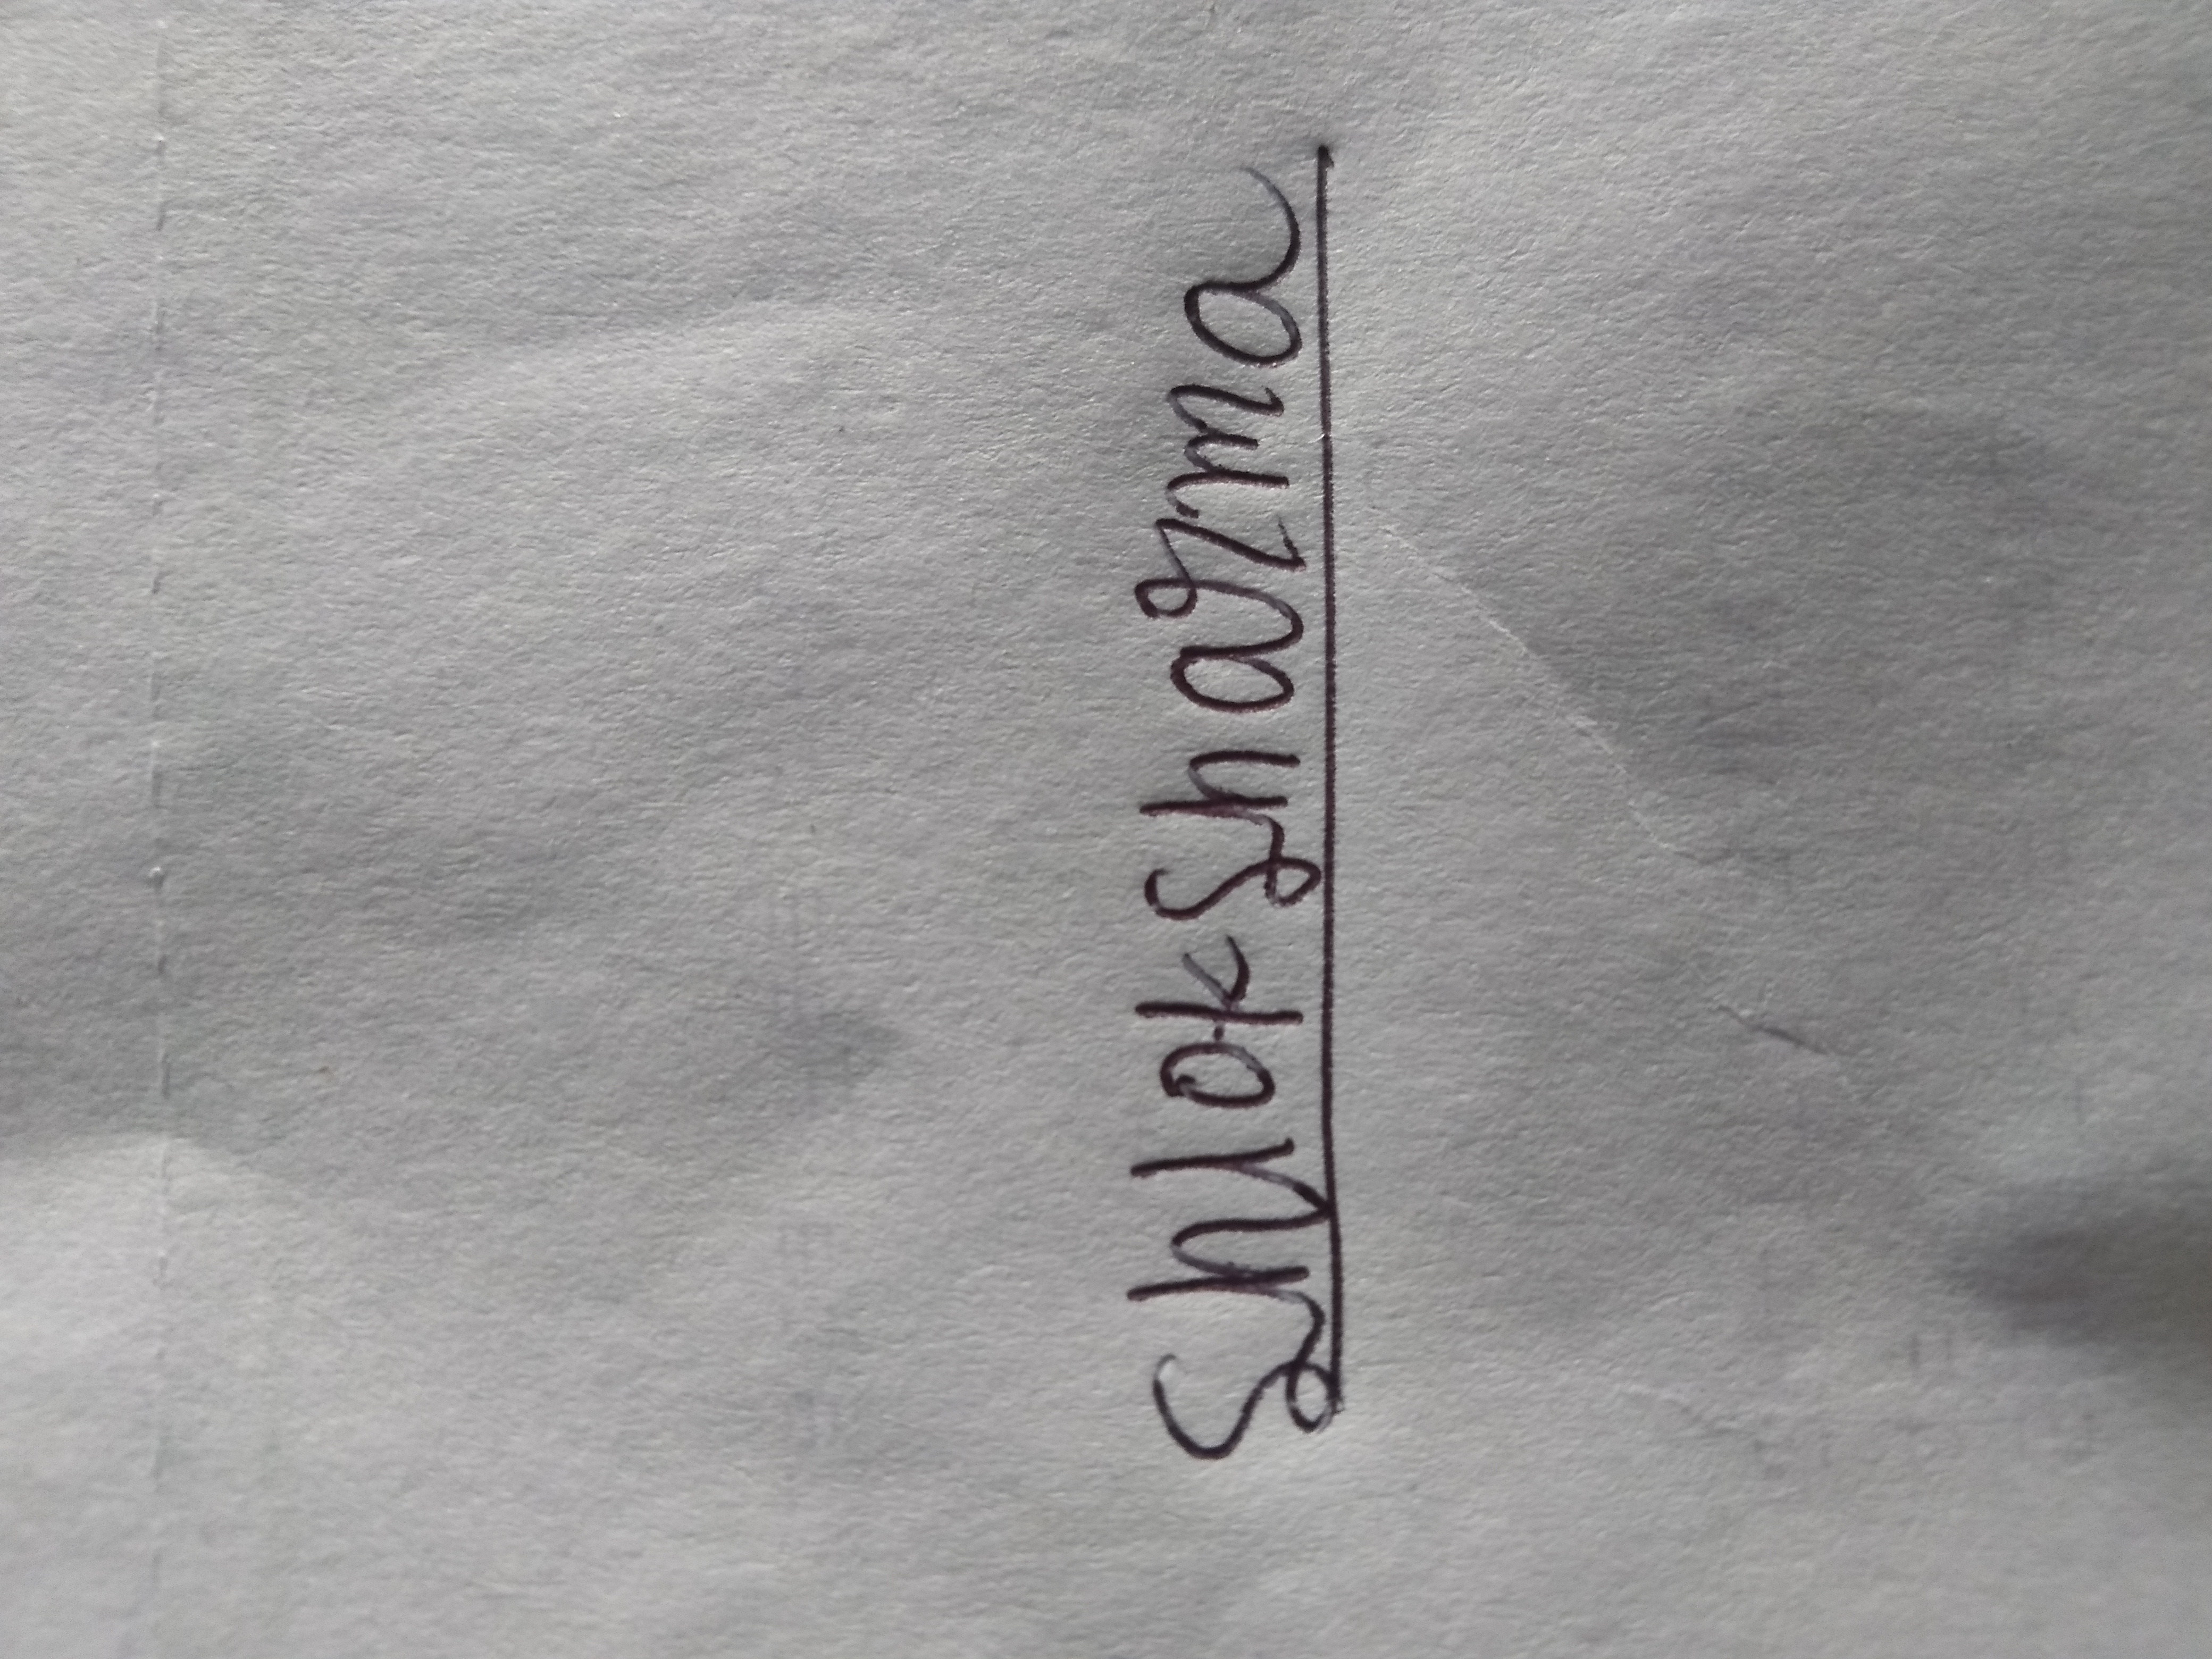 Shlok Sharma